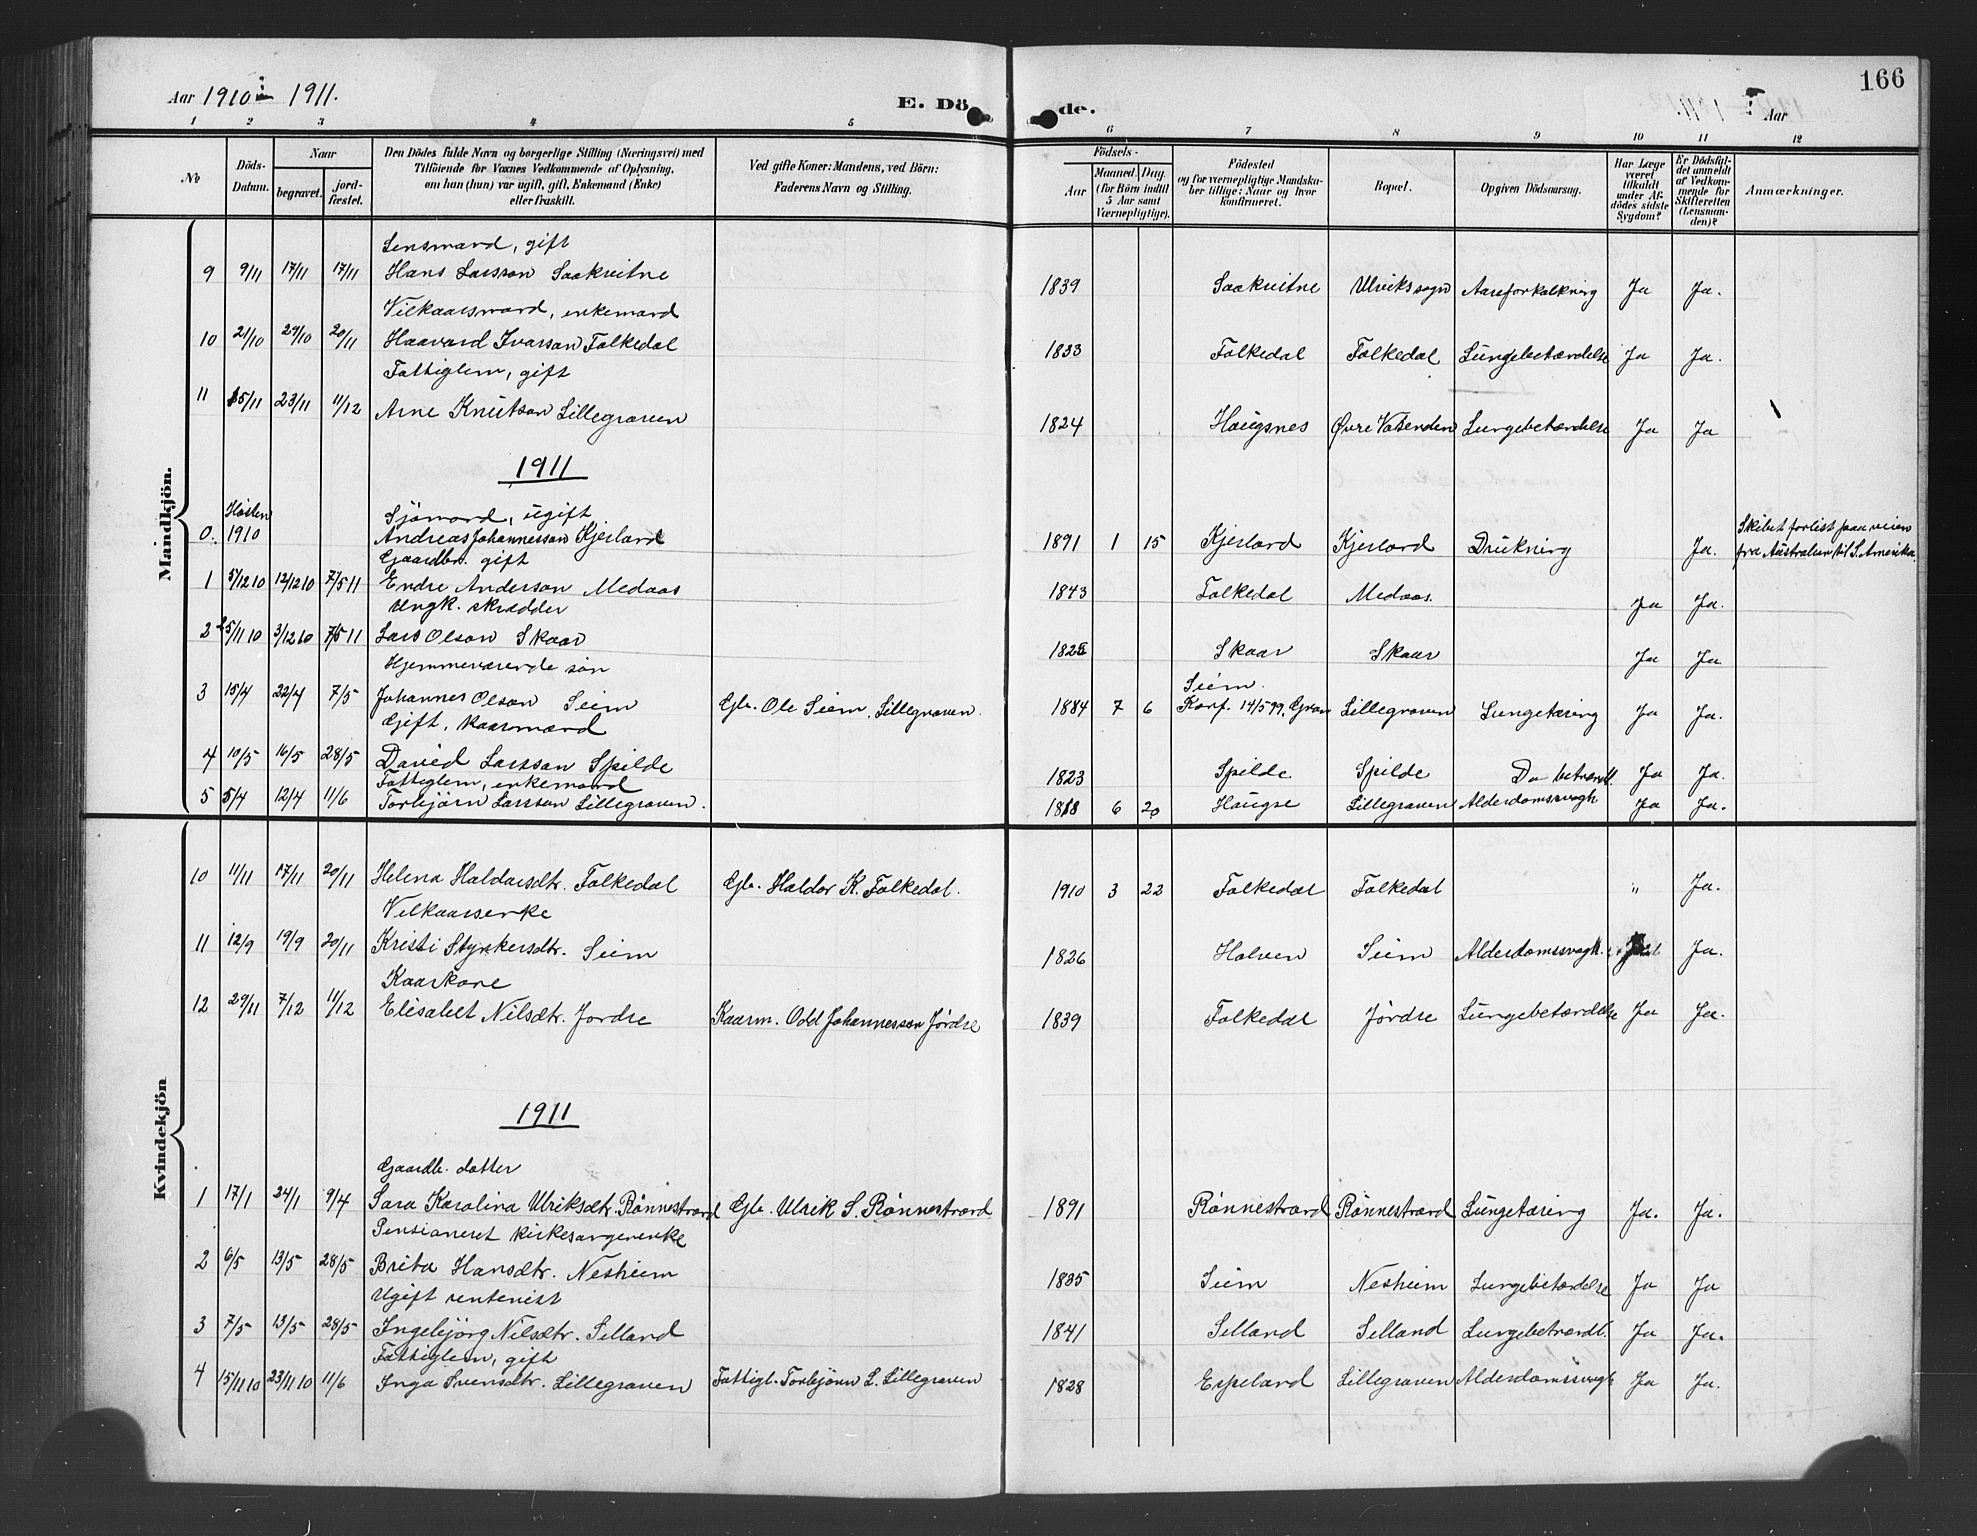 166
Aar 1910 - 1911.
E. Dö de.
Aar
1 2 3 4 5 6 7 8 9 10 11 12
No
Döds-Datum.
Naar
begravet.
jord-fæstet.
Den Dödes fulde Navn og borgerlige Stilling (Næringsvei) med
Tilföiende for Voxnes Vedkommende af Oplysning,
om han (hun) var ugift, gift, Enkemand (Enke)
eller fraskilt.
Ved gifte Koner: Mandens, ved Börn:
Faderens Navn og Stilling.
Födsels-
Aar
Maaned. Dag.
(for Börn indtil
5 Aar samt
Værnepligtige).
Födested
og for værnepligtige Mandska-
ber tillige: Naar og hvor
konfirmeret.
Bopæl.
Opgiven Dödsaarsag.
Har Læge
været
tilkaldt
under Af-
dödes sidste
Sygdom?
Er Dödsfal-
det anmeldt
af Vedkom-
mende for
Skifteretten
(Lensman-
den)?
Anmærkninger.
Mandkjön.
Lensmand, gift
9 9/11 17/11 17/11 Hans Larsson Saakvitne 1839 Saakvitne Ulvikssogn Aareforkalkning Ja Ja.
Vilkaarsmand, enkemand
10 21/10 29/10 20/11 Haavard Ivarson Folkedal 1833 Folkedal Folkedal Lungebetændelse Ja Ja.
Fattiglem, gift
11 15/11 23/11 11/12 Arne Knutson Lillegraven 1824 Haugsnes Øvre Vatsenden Lungebetændelse Ja Ja
1911
Sjömand, ugift
0. Høsten 1910 Andreas Johannesson Kjerland 1891 1 15 Kjerland Kjerland Drukning Ja. Skibet forlist paa veien
fra Australien til S. Amerika.
Gaardbr. gift
1 5/12 10 12/12 10 7/5 11 Endre Anderson Medaas 1843 Folkedal Medaas. Ja Ja.
Ungk. skrædder
2 25/11 10 3/12 10 7/5 11 Lars Olson Skaar Skaar Skaar Ja Ja
Hjemmeværende søn
3 15/4 22/4 7/5 Johannes Olson Seim Gb. Ole Seim, Lillegraven. 1884 7 6 Seim.
Konf. 14/5 99, Gran Lillegraven Lungetæring Ja Ja.
Gift, kaarmand
4 10/5 16/5 28/5 David Larsson Spilde 1823 Spilde Spilde Do betændl. Ja Ja.
Fattiglem, enkemand
5 5/4 12/4 11/6 Torbjörn Larsson Lillegraven. 1818 6 20 Haugse Lillegraven Alderdomssvagh Ja Ja.
Kvindekjön
10 11/11 17/11 20/11 Helena Haldorsdtr. Folkedal Gb. Haldor K. Folkedal. 1910 3 22 Folkedal Folkedal " Ja.
Vilkaarsenke
11 12/9 19/9 20/11 Kristi Styrkersdtr. Seim 1826 Holven Seim Alderdomssvagh. Ja.
Kaarkone
12 29/11 7/12 11/12 Elisabet Nilsdtr. Jordre Kaarm. Odd Johannesson Jørdre 1839 Folkedal Jørdre Lungebetændelse Ja Ja.
1911
Gaardb. datter
1 17/1 24/1 9/4 Sara Karolina Ulriksdtr. Rønnestrand Gb. Ulrik S. Rønnestrand 1891 Rønnestrand Rønnestrand Lungetæring Ja. Ja.
Pensioneret kirkesangerenke
2 6/5 13/5 28/5 Brita Hansdtr. Nesheim 1835 Seim Nesheim Lungebetændelse Ja Ja
Ugift rentenist
3 7/5 13/5 28/5 Ingebjörg Nilsdtr. Selland 1841 Selland Selland Lungebetændl. Ja Ja.
Fattiglem, gift
4 15/11 10 23/11 10 11/6 Inga Svensdtr. Lillegraven Fattigl. Torbjönn L. Lillegraven 1828 Espeland Lillegraven Alderdomssvagh Ja Ja.